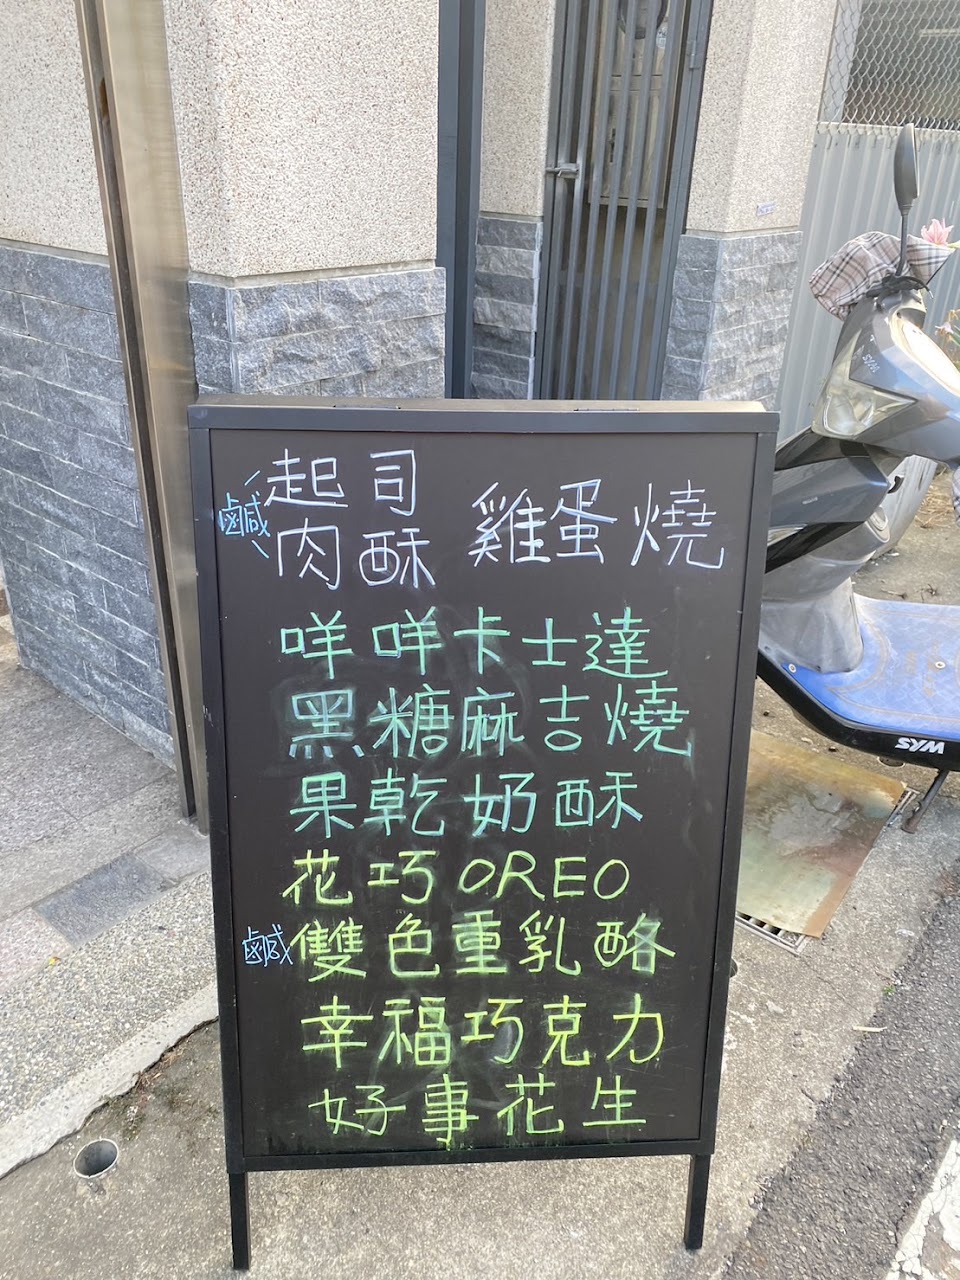 起司
鹹
肉酥 雞蛋燒
咩咩卡士達
黑糖麻吉燒
果乾奶酥
花巧OREO
鹹 雙色重乳酪
幸福巧克力
好事花生
SYM
SYM